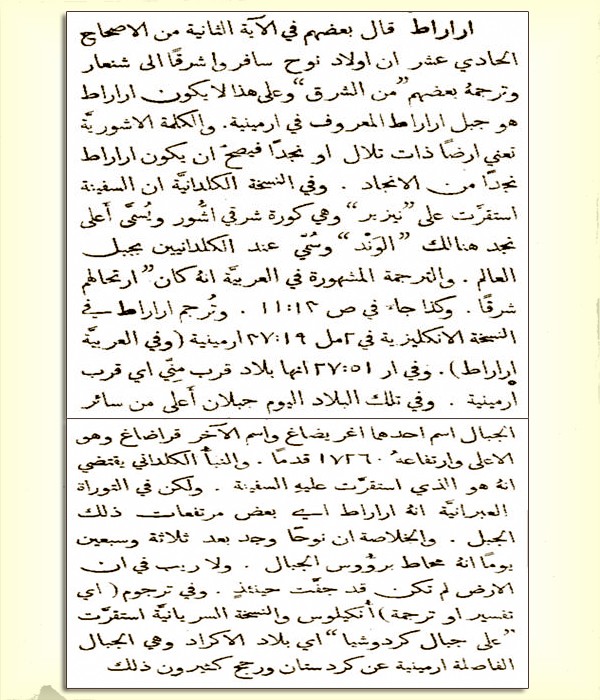 اراراط قال بعضهم في الآية الثانية من الاصحاح
الحادي عشر ان اولاد نوح سافروا شرقًا الى شنعار
وترجمهُ بعضهم ”من الشرق“ وعلى هذا لا يكون اراراط
هو جبل اراراط المعروف في ارمينية. والكلمة الاشوريَّة
تعني ارضًا ذات تلال او نجدًا فيصحّ ان يكون اراراط
نجدًا من الانجاد . وفي النسخة الكلدانيَّة ان السفينة
استقرَّت على ”نيزير“ وهي كورة شرقي اشُّور ويُسمَّى أَعلى
نجد هنالك ”الوَنْد“ وسُمّي عند الكلدانيين بجبل
العالم . والترجمة المشهورة في العربيَّة انهُ كان ”ارتحالهم
شرقًا . وكذا جاءَ في ص ١٣:١١ . وتُرجم اراراط في
النسخة الانكليزية في ٢مل ٣٧:١٩ ارمينية (وفي العربيَّة
اراراط). وفي ار ٢٧:٥١ انها بلاد قرب مِنّي اي قرب
ارمينية . وفي تلك البلاد اليوم جبلان أَعلى من سائر
الجبال اسم احدها اغريضاغ واسم الآخر قراضاغ وهو
الاعلى وارتفاعهُ ١٧٢٦٠ قدمًا . والنبأُ الكلداني يقتضي
انهُ هو الذي استقرَّت عليهِ السفينة . ولكن في التوراة
العبرانيَّة انهُ اراراط اي بعض مرتفعات ذلك
الجبل . والخلاصة ان نوحًا وجد بعد ثلاثة وسبعين
يومًا انهُ محاط برؤُوس الجبال . ولا ريب في ان
الارض لم تكن قد جفَّت حينئذٍ . وفي ترجوم (اي
تفسير او ترجمة) أُنكيلوس والنسخة السريانيَّة استقرَّت
”على جبال كردوشيا“ اي بلاد الاكراد وهي الجبال
الفاصلة ارمينية عن كردستان ورجح كثيرون ذلك